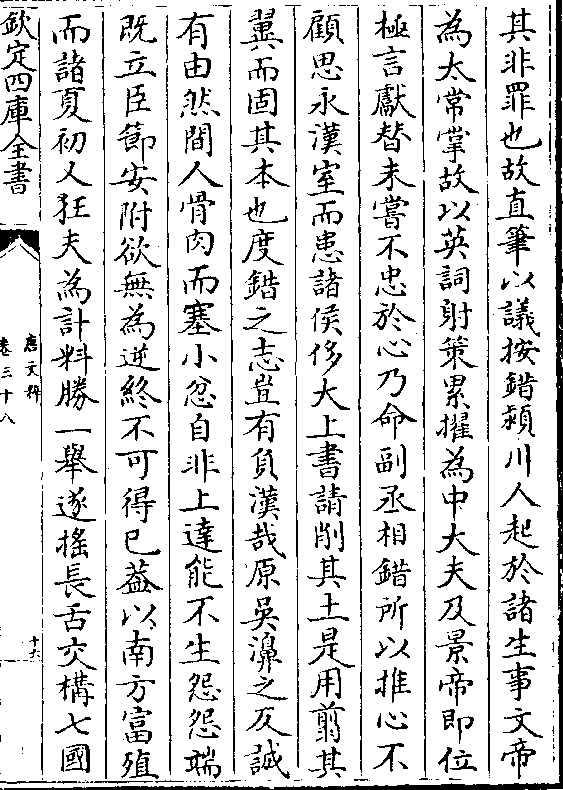 其非罪也故直筆以議按錯潁川人起於諸生事文帝
為太常掌故以英詞射策累擢為中大夫及景帝即位
極言獻替未嘗不忠於心乃命副丞相錯所以推心不
顧思永漢室而患諸侯侈大上書請削其土是用翦其
翼而固其本也度錯之志豈有負漢哉原吳濞之反誠
有由然間人骨肉而塞小忿自非上達能不生怨怨端
既立臣節安附欲無為逆終不可得已葢以南方富殖
而諸夏初乂狂夫為計料勝一舉遂搖長舌交構七國
欽定四庫全書
唐文粹
卷三十八
十六